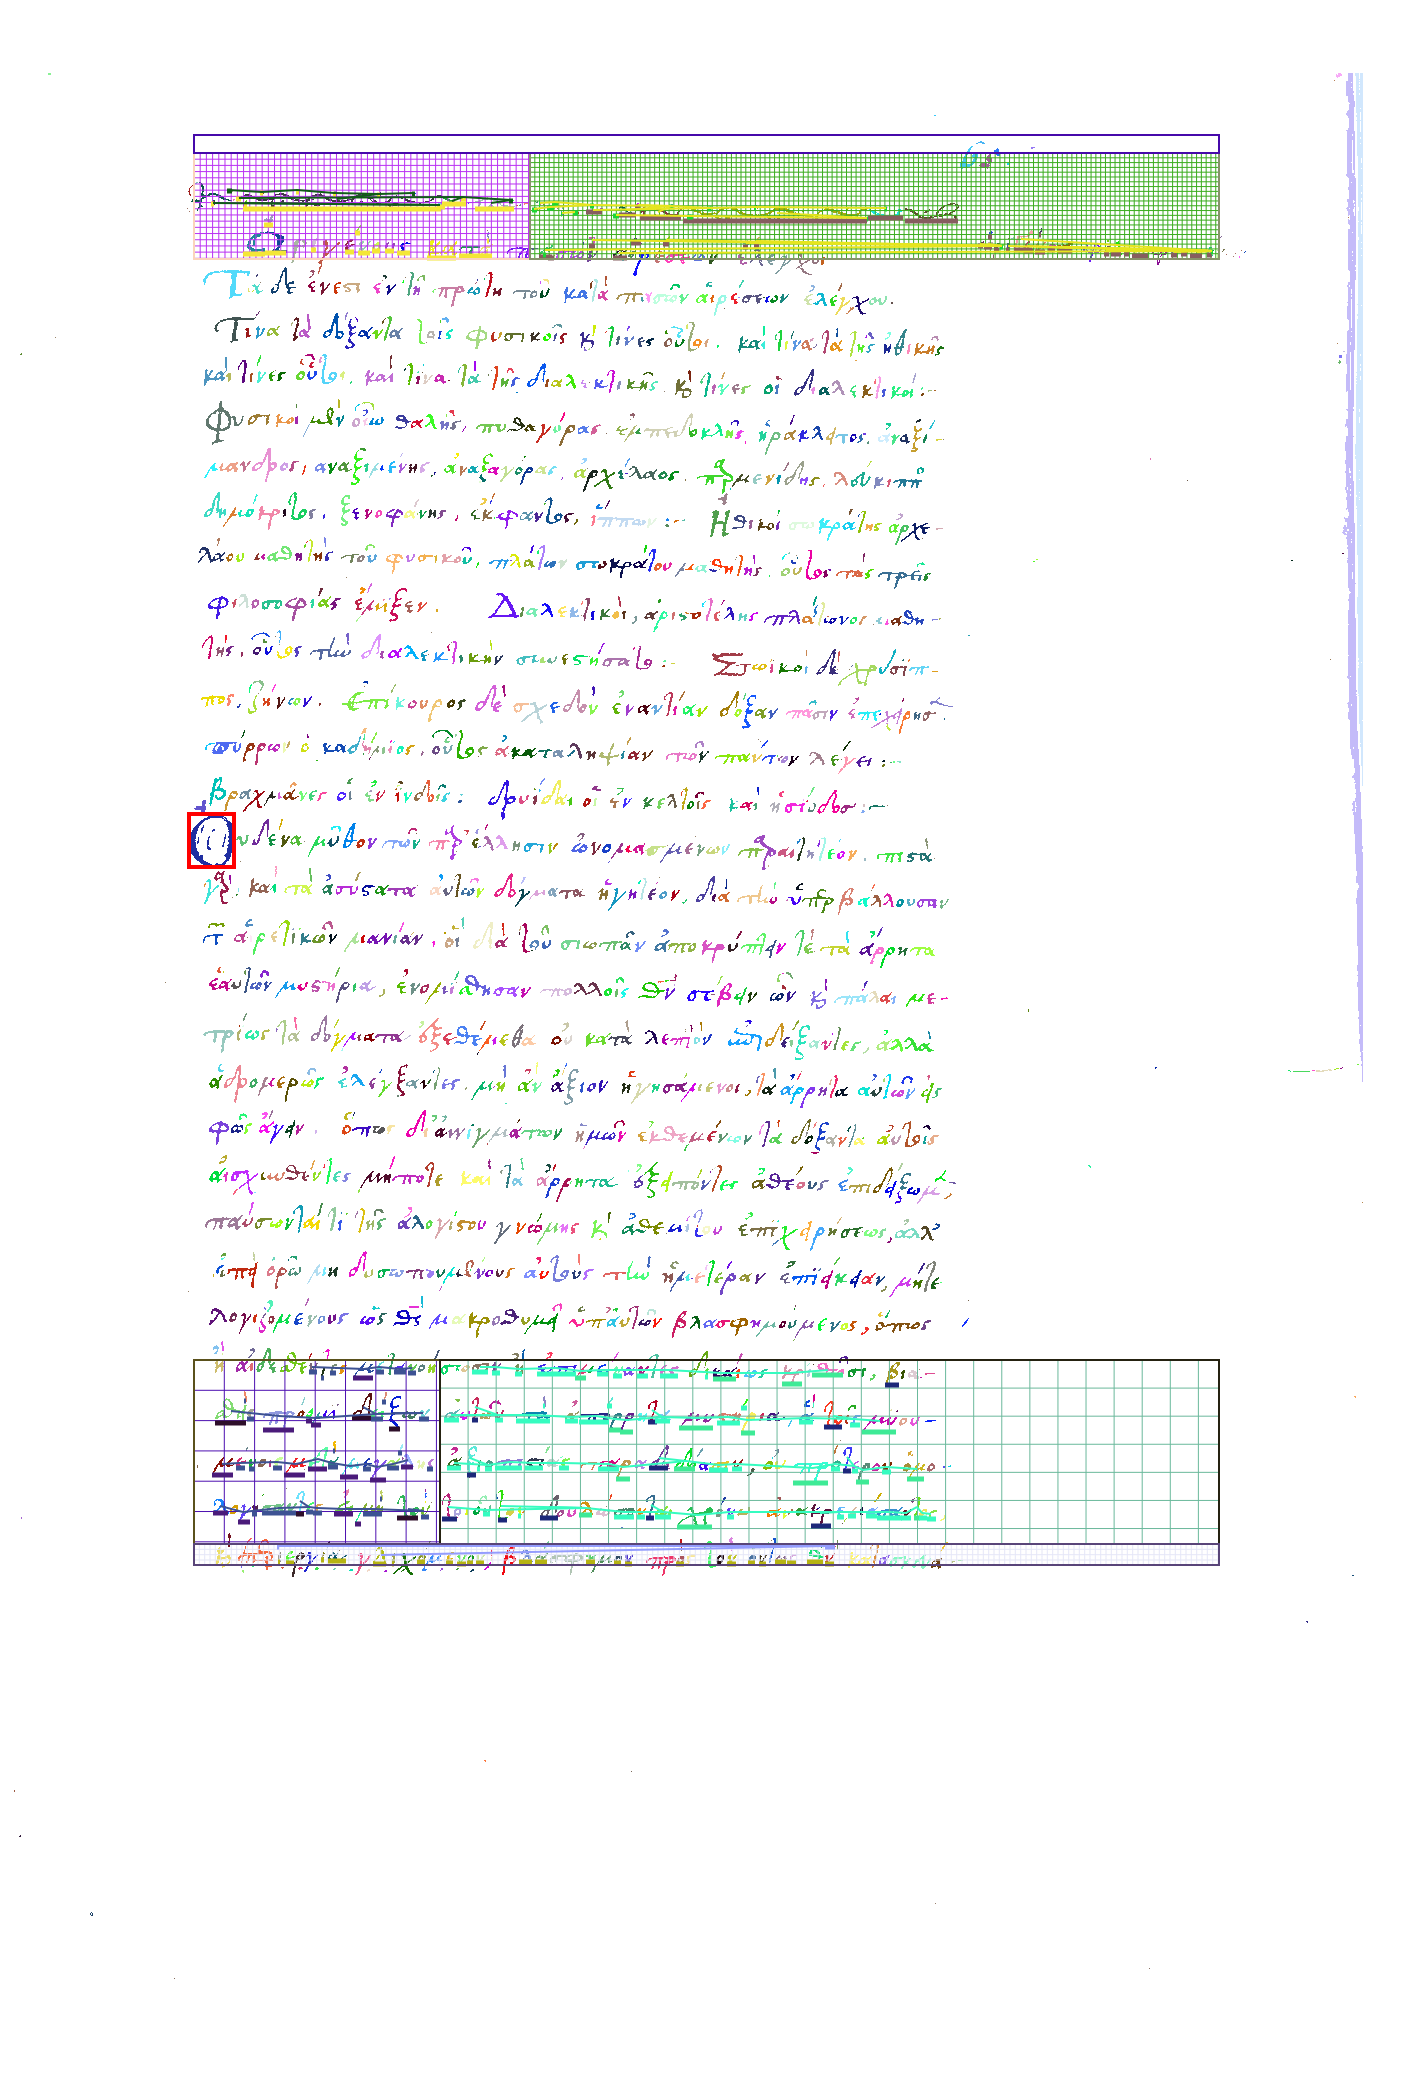 Ὠριγένους κατὰ πασῶν αἱρέσεων ἔλεγχοι
Τά δε ἔνεστι ἐν τῇ πρώτῃ τοῦ κατὰ πασῶν αἱρέσεων ἐλέγχου.
Τίνα τὰ δόξαντα τοῖς φυσικοῖς κ τίνες οὗτοι. καὶ τίνα τὰ τῆς ἠθικῆς
καὶ τίνες οὗτοι. καὶ τίνα τὰ τῆς διαλεκτικῆς κ τίνες οἱ διαλεκτικοί:-
Φυσικοὶ μὲν οὖν θαλῆς, πυθαγόρας ἐμπεδοκλῆς, ἡράκλειτος, ἀναξί-
μανδρος, ἀναξιμένης, ἀναξαγόρας, ἀρχέλαος. παρμενίδης, λεύκιππος
δημόκριτος, ξενοφάνης, ἔκφαντος, ἵππων:- Ἠθικοὶ σωκράτης ἀρχε-
λάου μαθητὴς τοῦ φυσικοῦ, πλάτων σωκράτου μαθητὴς. οὗτος τὰς τρεῖς
φιλοσοφίας ἔμιξεν. Διαλεκτικοὶ, ἀριστοτέλης πλάτωνος μαθη-
τής. οὗτος τὴν διαλεκτικὴν συνεστήσατο:- Στωϊκοὶ δὲ χρύσιπ-
πος, ζήνων. Ἐπίκουρος δὲ σχεδὸν ἐναντίαν δόξαν πᾶσιν ἐπεχείρησεν.
πύρρων ὁ καδήμιος. οὗτος ἀκαταληψίαν τῶν πάντων λέγει:-
Βραχμᾶνες οἱ ἐν ἰνδοῖς: δρυΐδαι οἱ ἐν κελτοῖς καὶ ἡσίοδος:-
Οὐδένα μῦθον τῶν παρ ἕλλησιν ὠνομασμενων παραιτητέον. πιστὰ
γὰρ καὶ τὰ ἀσύστατα αὐτῶν δόγματα ἡγητέον, διὰ τὴν ὑπερβάλλουσαν
τῶν αἱρετικῶν μανίαν, οἳ διὰ τοῦ σιωπᾶν ἀποκρύπτειν τὲ τὰ ἄρρητα
ἑαυτῶν μυστήρια, ἐνομίσθησαν πολλοῖς θν σέβειν ὧν κ πάλαι με-
τρίως τὰ δόγματα ἐξεθέμεθα οὐ κατὰ λεπτὸν ἐπιδείξαντες, ἀλλὰ
ἁδρομερῶς ἐλέγξαντες. μὴ ἂν ἄξιον ἡγησάμενοι, τὰ ἄρρητα αὐτῶν εἰς
φῶς ἄγειν. ὅπως δι᾽ αἰνιγμάτων ἡμῶν ἐκθεμένων τὰ δόξαντα αὐτοῖς
αἰσχυνθέντες μήποτε καὶ τὰ ἄρρητα ἐξειπόντες ἀθέους ἐπιδείξωμεν,
παύσωνταί τι τῆς ἀλογίστου γνώμης κ ἀθεμίτου ἐπιχειρήσεως, ἀλλ᾽
ἐπεὶ ὁρῶ μὴ δυσωπουμένους αὐτοὺς τὴν ἡμετέραν ἐπιείκειαν, μήτε
λογιζομένους ὡς θς μακροθυμεῖ ὑπ᾽ αὐτῶν βλασφημούμενος, ὅπως
ἢ αἰδεσθέντες μετανοήσωσιν ἢ ἐπιμείναντες δικαίως κριθῶσι, βια-
σθεὶς πρόειμι δείξων αὐτῶν τὰ ἀπόρρητα μυστήρια, ἃ τοῖς μυου-
μένοις μετὰ μεγάλης ἀξιοπιστίας παραδιδόασιν, οὐ πρότερον ὁμο
λογήσαντες εἰ μὴ τὸν τοιοῦτον δουλώσωνται χρόνῳ ἀνακρεμάσαντες